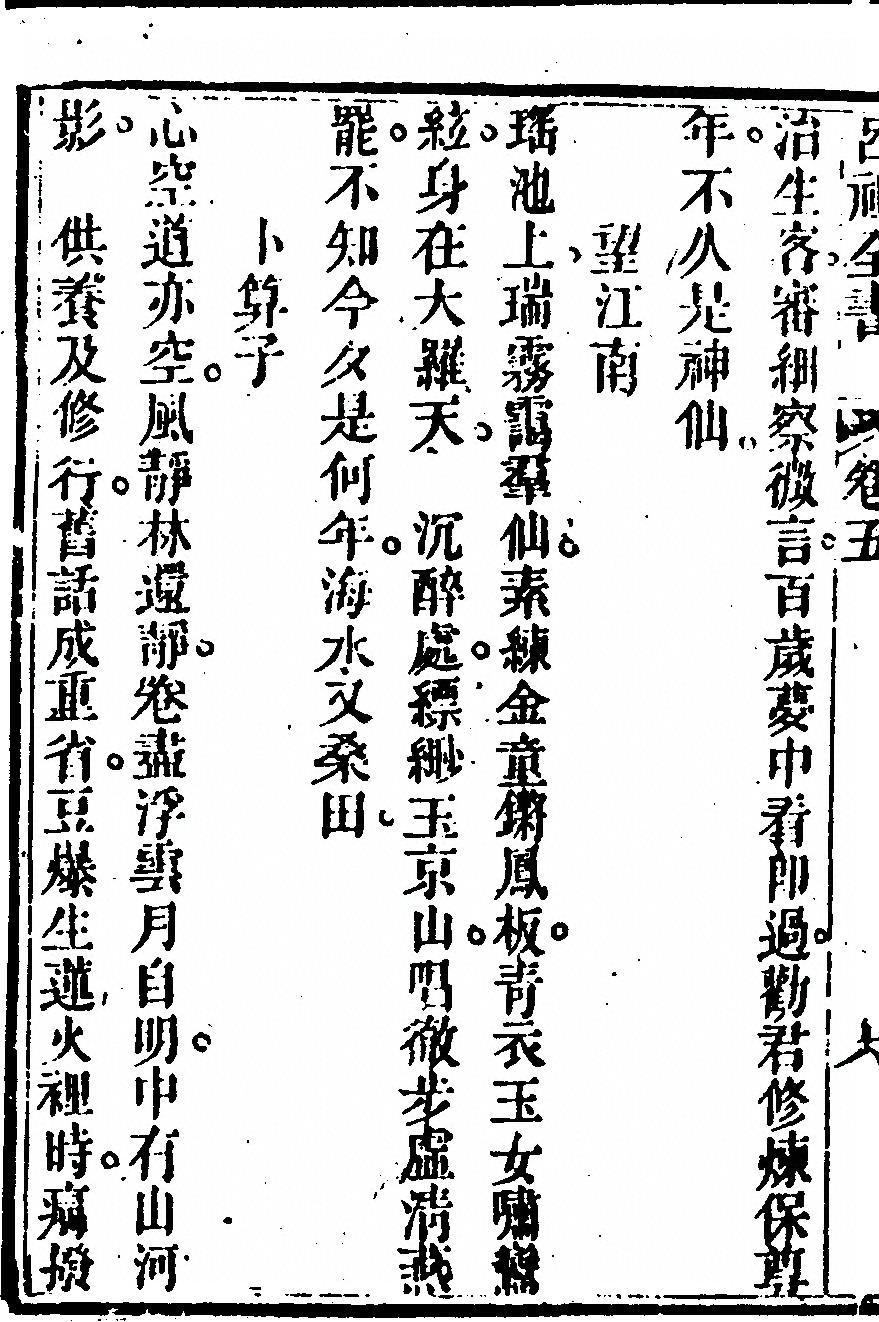 呂祖全書 卷五
治生客。審細察微言。百歲夢中看即過。勸君修煉保尊
年。不久是神仙。
望江南
瑤池上、瑞霧靄羣仙。素練金童鏘鳳板。青衣玉女嘯鸞
絃。身在大羅天。 沉醉處。縹緲玉京山。唱徹步虛清燕
罷。不知今夕是何年。海水又桑田。
卜算子
心空道亦空。風靜林還靜。卷盡浮雲月自明。中有山河
影。 供養及修行。舊話成重省。豆爆生蓮火裡時。痛撥